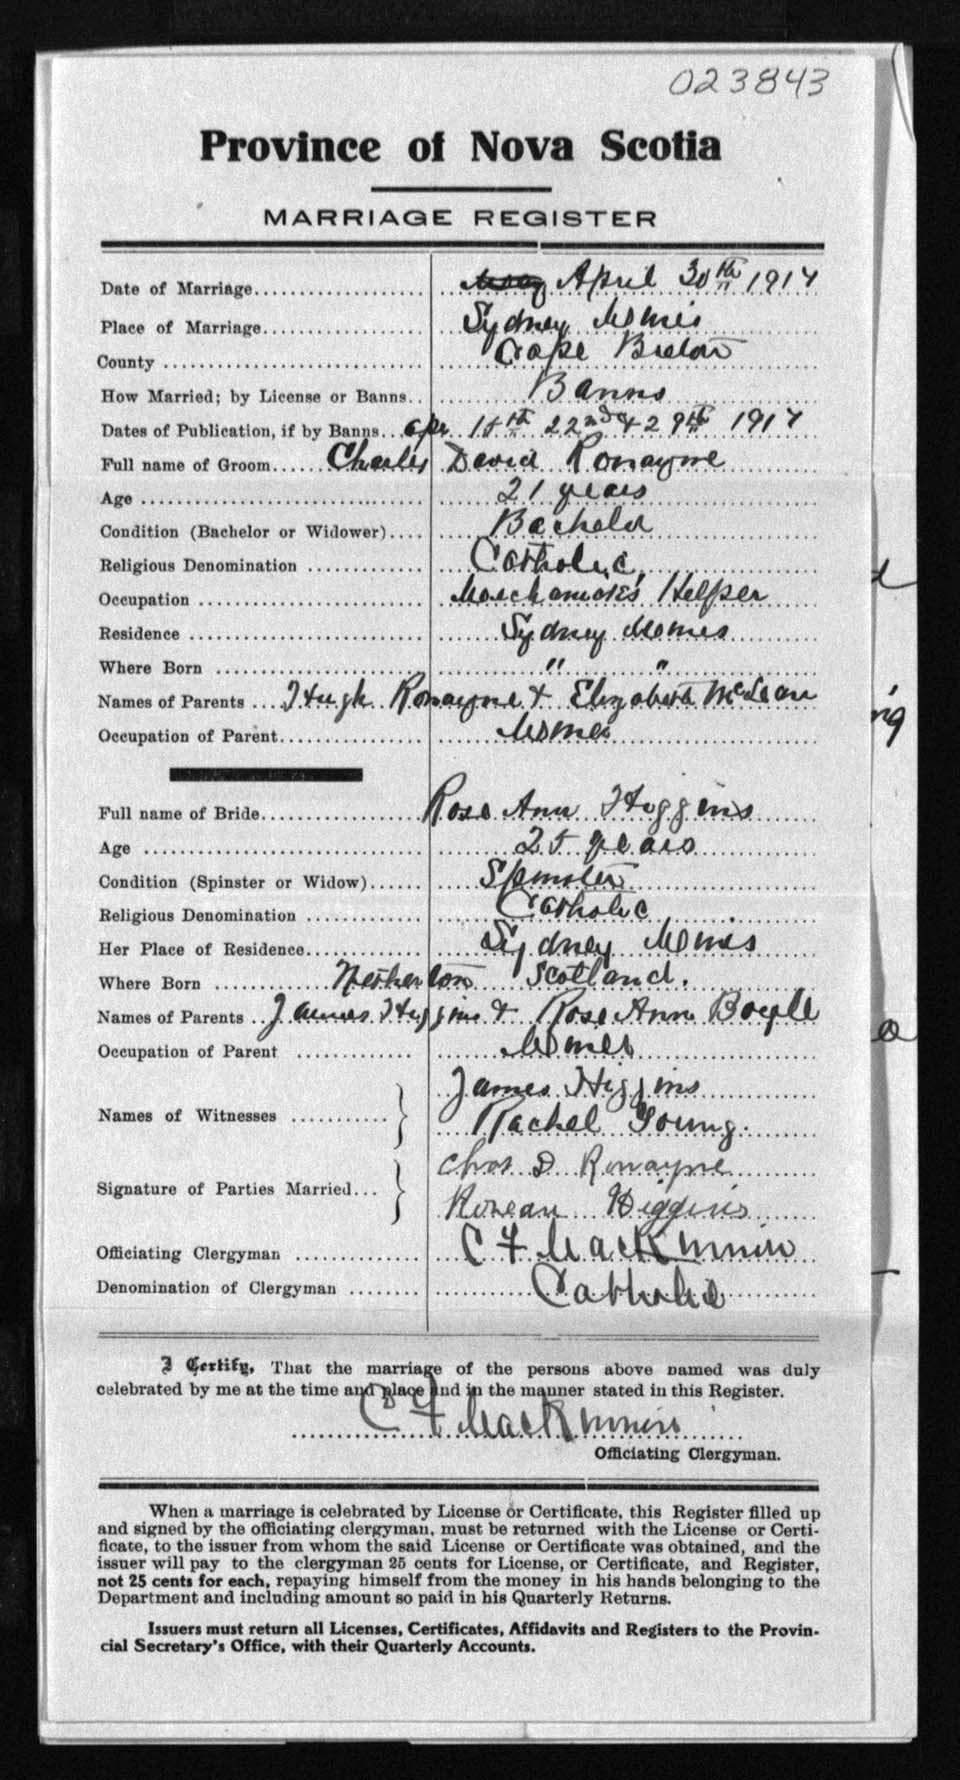 023843
Province of Nova Scotia
MARRIAGE REGISTER
Date of Marriage April 30th 1917
Place of Marriage Sydney Mines
County Cape Breton
How Married; by License or Banns Banns
Dates of Publication, if by Banns Apr 15th 22nd & 29th 1917
Full name of Groom Charles David Ronayne
Age 21 years
Condition (Bachelor or Widower) Bachelor
Religious Denomination Catholic
Occupation Helper
Residence Sydney Mines
Where Born " "
Names of Parents Hugh Ronayne & Elizabeth McLean
Occupation of Parent Miner
Full name of Bride Rose Ann Higgins
Age 25 years
Condition (Spinster or Widow) Spinster
Religious Denomination Catholic
Her Place of Residence Sydney Mines
Where Born Netherton Scotland.
Names of Parents James Higgins & Rose Ann Boyle
Occupation of Parent Miner
Names of Witnesses James Higgins
Rachel Young.
Signature of Parties Married Chas D Ronayne
Rosean Higgins
Officiating Clergyman C F MacKinnon
Denomination of Clergyman Catholic
I Certify, That the marriage of the persons above named was duly
celebrated by me at the time and place and in the manner stated in this Register.
C F MacKinnon
Officiating Clergyman.
When a marriage is celebrated by License or Certificate, this Register filled up
and signed by the officiating clergyman, must be returned with the License or Certi-
ficate, to the issuer from whom the said License or Certificate was obtained, and the
issuer will pay to the clergyman 25 cents for License, or Certificate, and Register,
not 25 cents for each, repaying himself from the money in his hands belonging to the
Department and including amount so paid in his Quarterly Returns.
Issuers must return all Licenses, Certificates, Affidavits and Registers to the Provin-
cial Secretary's Office, with their Quarterly Accounts.